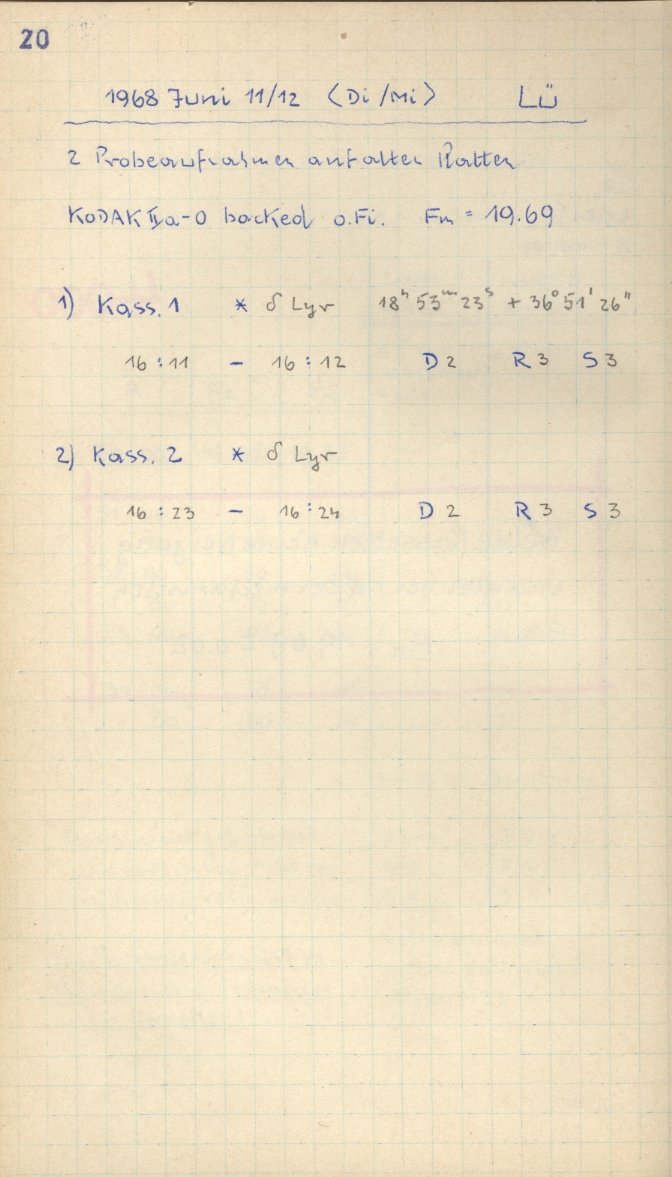 20
1968 Juni 11/12 (Di/Mi) Lü
2 Probeaufnahmen auf alten Platten
KODAK IIa-O backed o.Fi. Fn = 19.69
1) Kass. 1 * δ Lyr 18ʰ 53ᵐ 23ˢ + 36° 51' 26"
16 : 11 – 16 : 12 D 2 R 3 S 3
2) Kass. 2 * δ Lyr
16 : 23 – 16 : 24 D 2 R 3 S 3